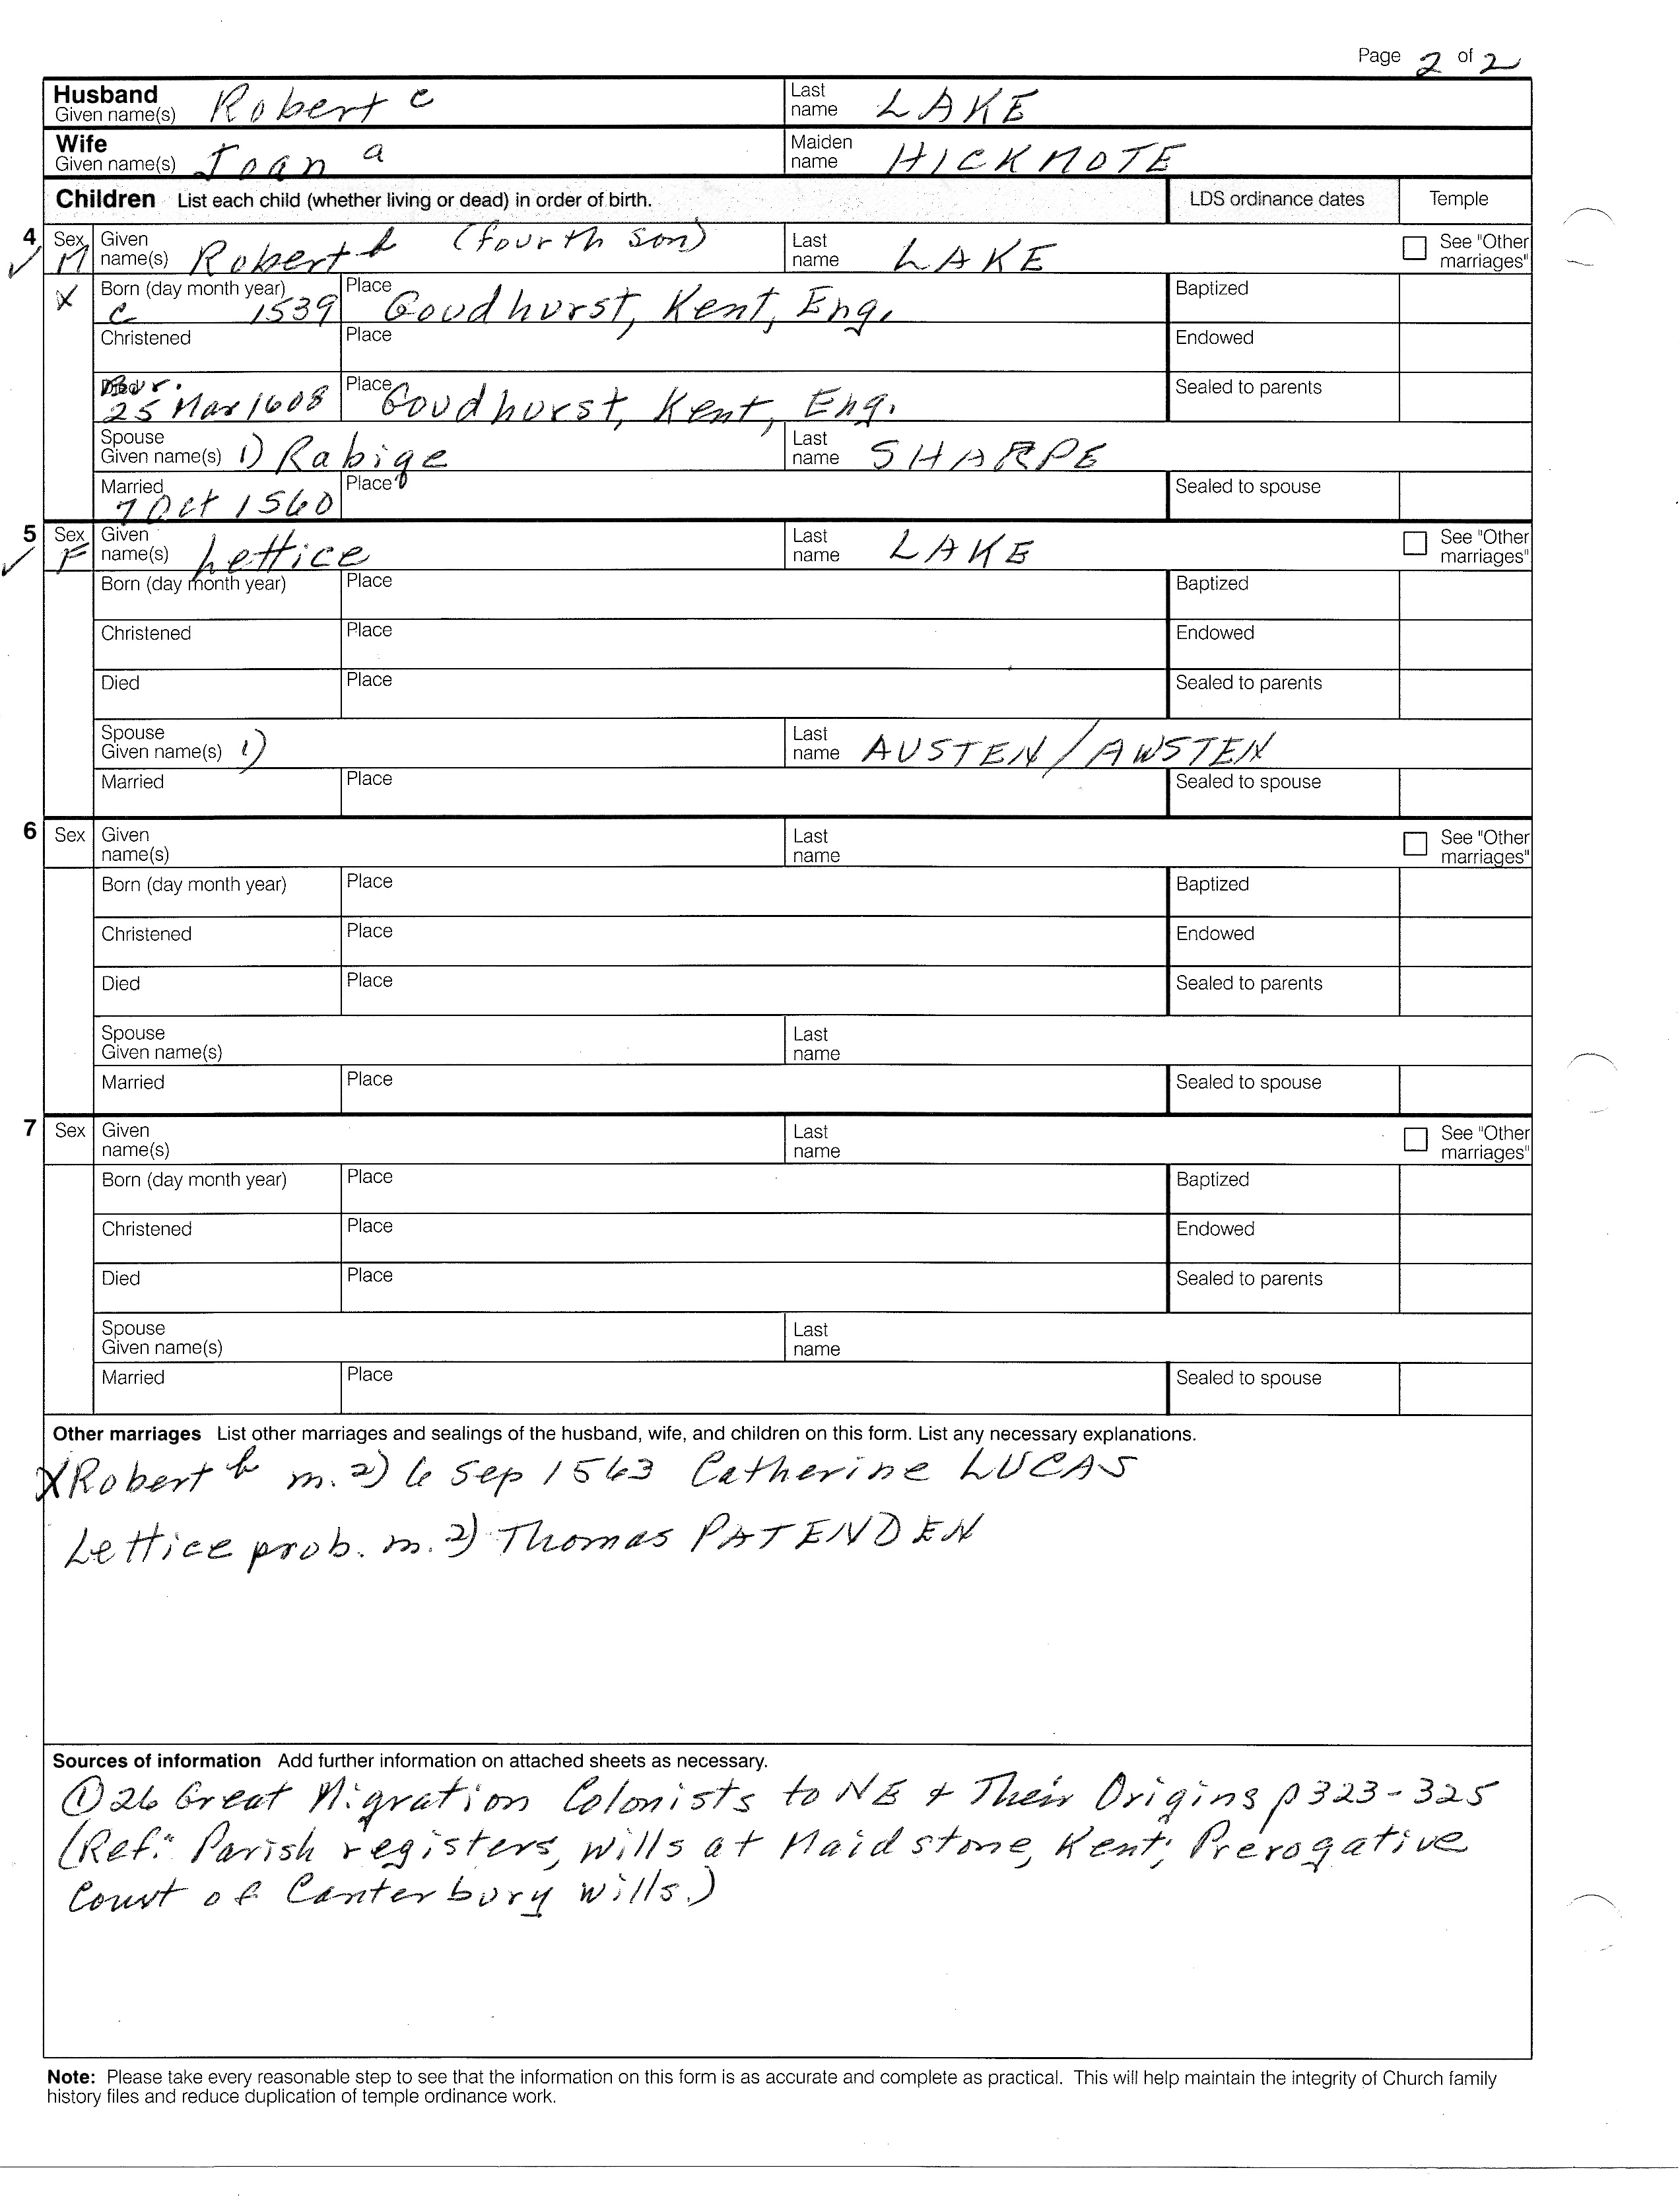 Page 2 of 2
Husband Given name(s) Robert c Last name LAKE
Wife Given name(s) Joan a Maiden name HICKMOTE
Children List each child (whether living or dead) in order of birth. LDS ordinance dates Temple
4 Sex M Given name(s) Robert b (fourth son) Last name LAKE See "Other marriages"
X Born (day month year) c 1539 Place Goudhurst, Kent, Eng. Baptized
Christened Place Endowed
Bur. 25 Mar 1608 Place Goudhurst, Kent, Eng. Sealed to parents
Spouse Given name(s) 1) Rabige Last name SHARPE
Married 7 Oct 1560 Place Sealed to spouse
5 Sex F Given name(s) Lettice Last name LAKE See "Other marriages"
Born (day month year) Place Baptized
Christened Place Endowed
Died Place Sealed to parents
Spouse Given name(s) 1) Last name AUSTEN/AWSTEN
Married Place Sealed to spouse
6 Sex Given name(s) Last name See "Other marriages"
Born (day month year) Place Baptized
Christened Place Endowed
Died Place Sealed to parents
Spouse Given name(s) Last name
Married Place Sealed to spouse
7 Sex Given name(s) Last name See "Other marriages"
Born (day month year) Place Baptized
Christened Place Endowed
Died Place Sealed to parents
Spouse Given name(s) Last name
Married Place Sealed to spouse
Other marriages List other marriages and sealings of the husband, wife, and children on this form. List any necessary explanations.
X Robert b m. 2) 6 Sep 1563 Catherine LUCAS
Lettice prob. m. 2) Thomas PATENDEN
Sources of information Add further information on attached sheets as necessary.
① 26 Great Migration Colonists to NE & Their Origins p 323-325
(Ref: Parish registers, wills at Maidstone, Kent; Prerogative
Court of Canterbury wills.)
Note: Please take every reasonable step to see that the information on this form is as accurate and complete as practical. This will help maintain the integrity of Church family
history files and reduce duplication of temple ordinance work.